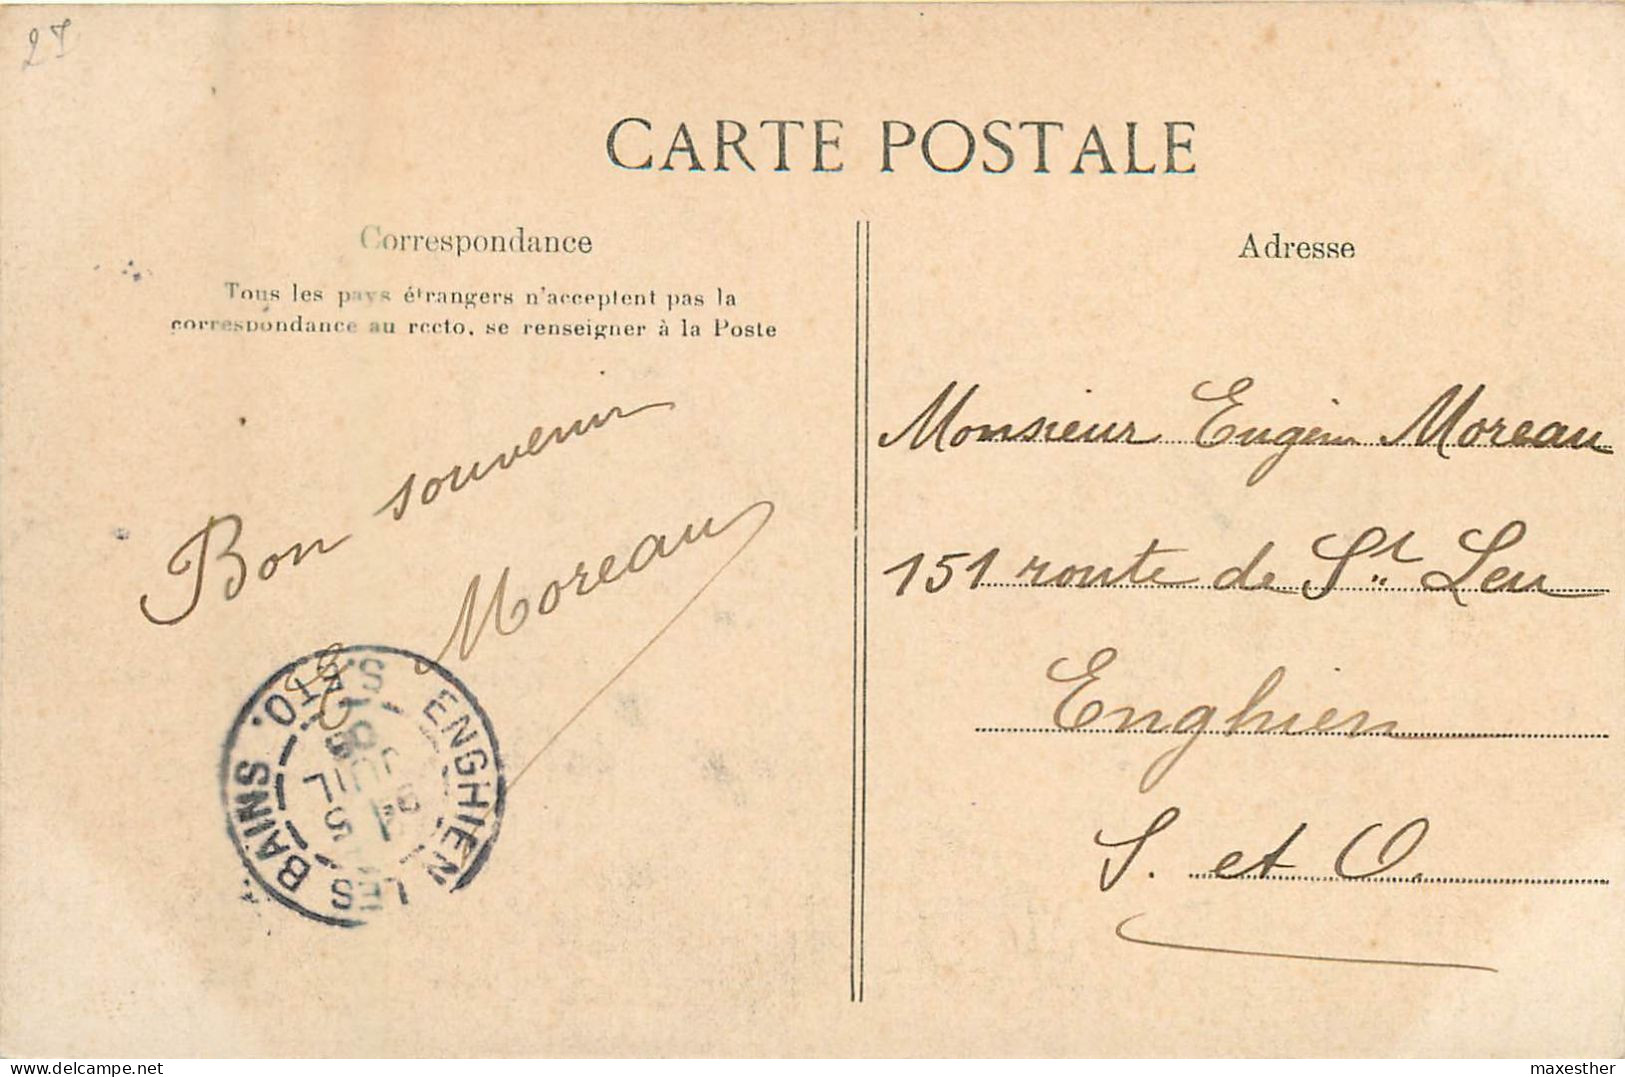 27
CARTE POSTALE
Correspondance
Tous les pays étrangers n'acceptent pas la
correspondance au recto, se renseigner à la Poste
Bon souvenir
Moreau
ENGHIEN LES BAINS
S. ET O.
Adresse
Monsieur Eugène Moreau
151 route de St. Leu
Enghien
S. et O.
delcampe.net
maxesther